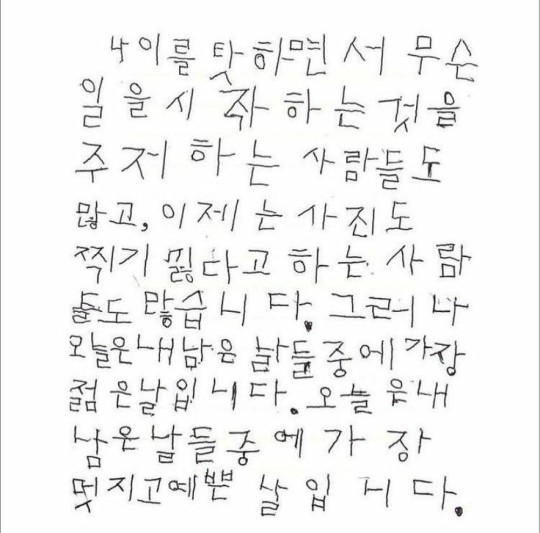 나이를 탓하면서 무슨
일을 시작하는 것을
주저하는 사람들도
많고, 이제는 사진도
찍기 싫다고 하는 사람
들도 많습니다. 그러나
오늘은 내 남은 날들 중에 가장
젊은 날입니다. 오늘은 내
남은 날들 중에 가장
멋지고 예쁜 날입니다.